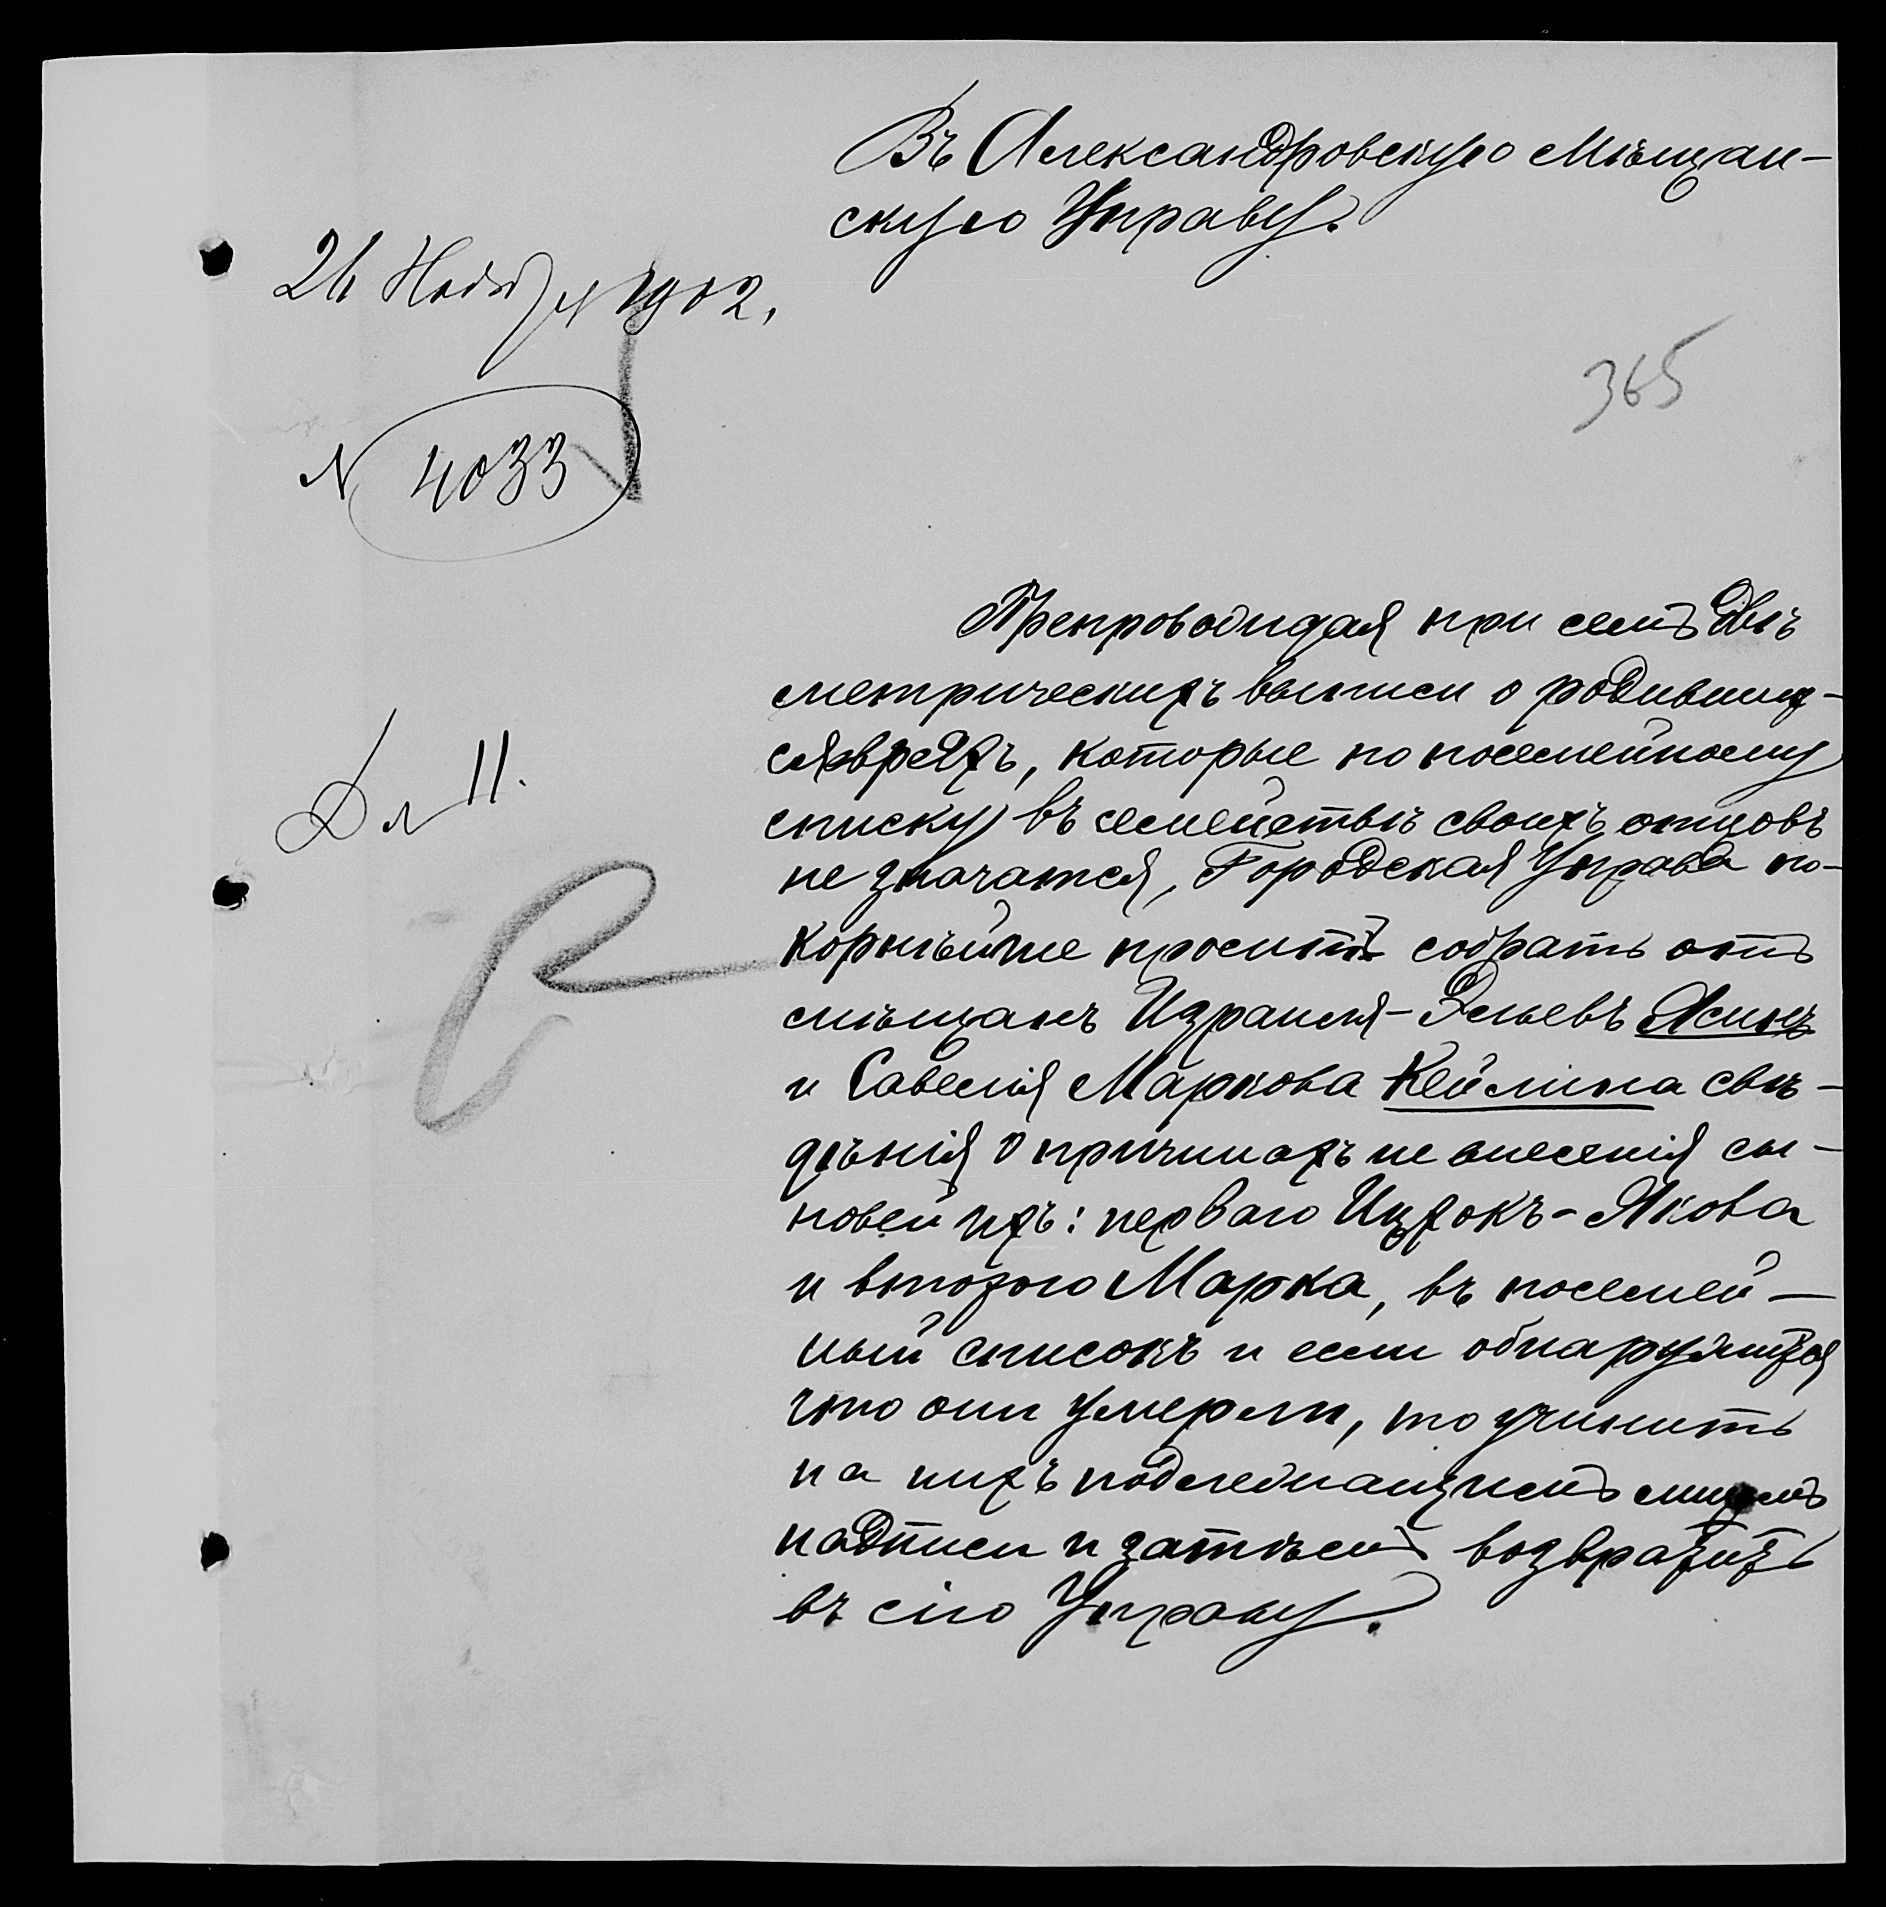 Въ Александровскую Мѣщан-
скую Управу.
26 Ноября 1902.
365
№ 4033
Препровождая при семъ двѣ
метрическихъ выписи о родивших-
ся евреяхъ, которые по посемейному
списку въ семействѣ своихъ отцовъ
не значатся, Городская Управа по-
корнѣйше проситъ собрать отъ
мѣщанъ Израиля- Эльевъ
и Савелія Маркова Кеймина свѣ-
дѣнія о причинахъ не внесенія сы-
новей ихъ: перваго Ицхокъ-Якова
и второго Марка, въ посемей-
ный списокъ и если обнаружится
что они умерли, то учинить
на нихъ подлежащимъ
надписи и затѣмъ возвратить
въ сію Управу.
Дѣл 11.